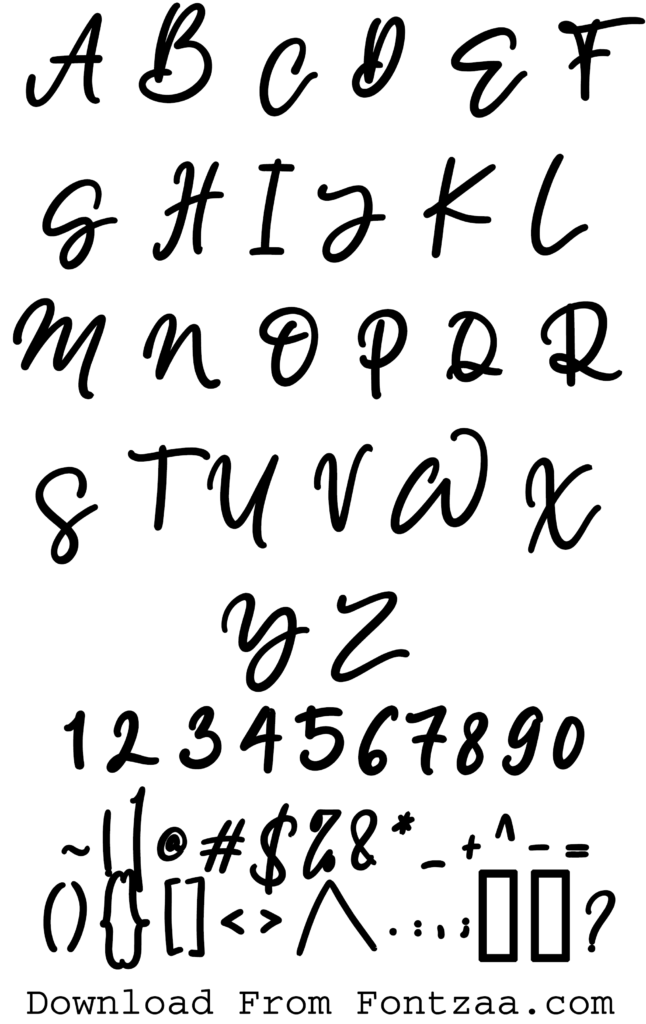 A B C D E F
G H I J K L
M N O P Q R
S T U V W X
Y Z
1 2 3 4 5 6 7 8 9 0
~ | ! @ # $ % & * _ + ^ - =
( ) { } [ ] < > / \ . : , ; ▯ ▯ ?
Download From Fontzaa.com